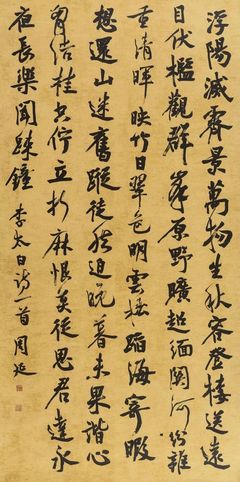 浮陽滅霽景萬物生秋容登樓送遠
目伏檻觀群峯原野曠超緬關河紛雜
重清暉映竹日翠色明雲松蹈海寄暇
想還山迷舊蹤徒然迫晚暮未果諧心
胷結桂空佇立折麻恨莫從思君達永
夜長樂聞疎鐘 李太白詩一首 周延